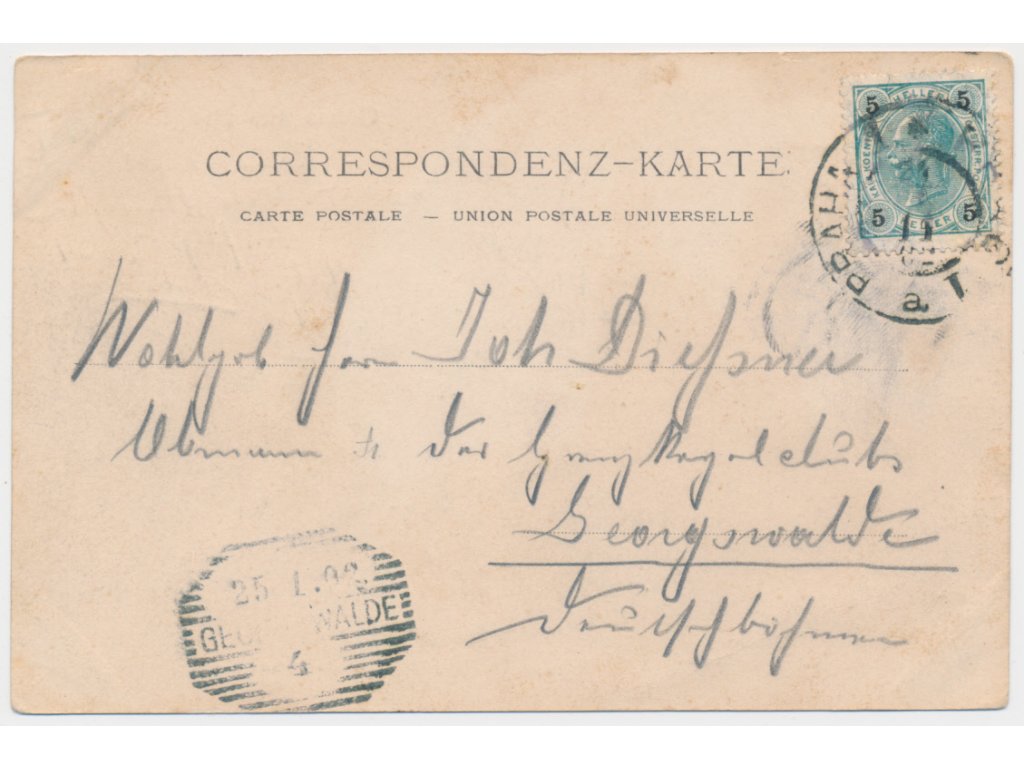 CORRESPONDENZ-KARTE
CARTE POSTALE – UNION POSTALE UNIVERSELLE
5 HELLER 5
5 HELLER 5
PRAHA
a.
Wohlgeb Herrn Joh Dießner
Obmann der Grenzkegelclubs
Georgswalde
Deutschböhmen
25
WALDE
4